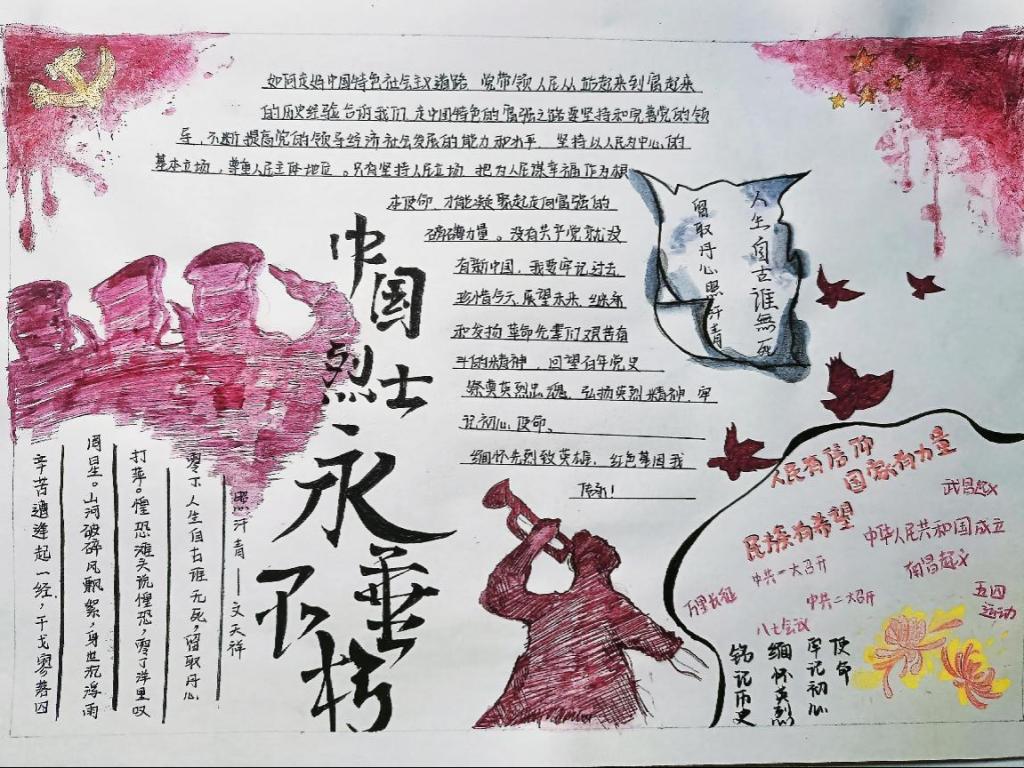 如何走好中国特色社会主义道路 党带领人民从站起来到富起来
的历史经验告诉我们,走中国特色的富强之路要坚持和完善党的领
导,不断提高党的领导经济社会发展的能力和水平,坚持以人民为中心的
基本立场,尊重人民主体地位。只有坚持人民立场 把为人民谋幸福作为根
本使命,才能凝聚起走向富强的
磅礴力量。没有共产党就没
有新中国,我要牢记过去
珍惜今天,展望未来 继承
和发扬革命先辈们艰苦奋
斗的精神,回望百年党史
祭奠英烈忠魂,弘扬英烈精神,牢
记初心使命。
缅怀先烈致英雄,红色基因我
传承!
人生自古谁無死
留取丹心照汗青
中国
烈士
永
垂
不
朽
辛苦遭逢起一经,干戈寥落四
周星。山河破碎风飘絮,身世沉浮雨
打萍。惶恐滩头说惶恐,零丁洋里叹
零丁人生自古谁无死,留取丹心
照汗青——文天祥
人民有信仰
国家有力量
民族有希望
武昌起义
中华人民共和国成立
中共一大召开
南昌起义
万里长征
中共二大召开
五四
运动
八七会议
使命
牢记初心
缅怀英烈
铭记历史